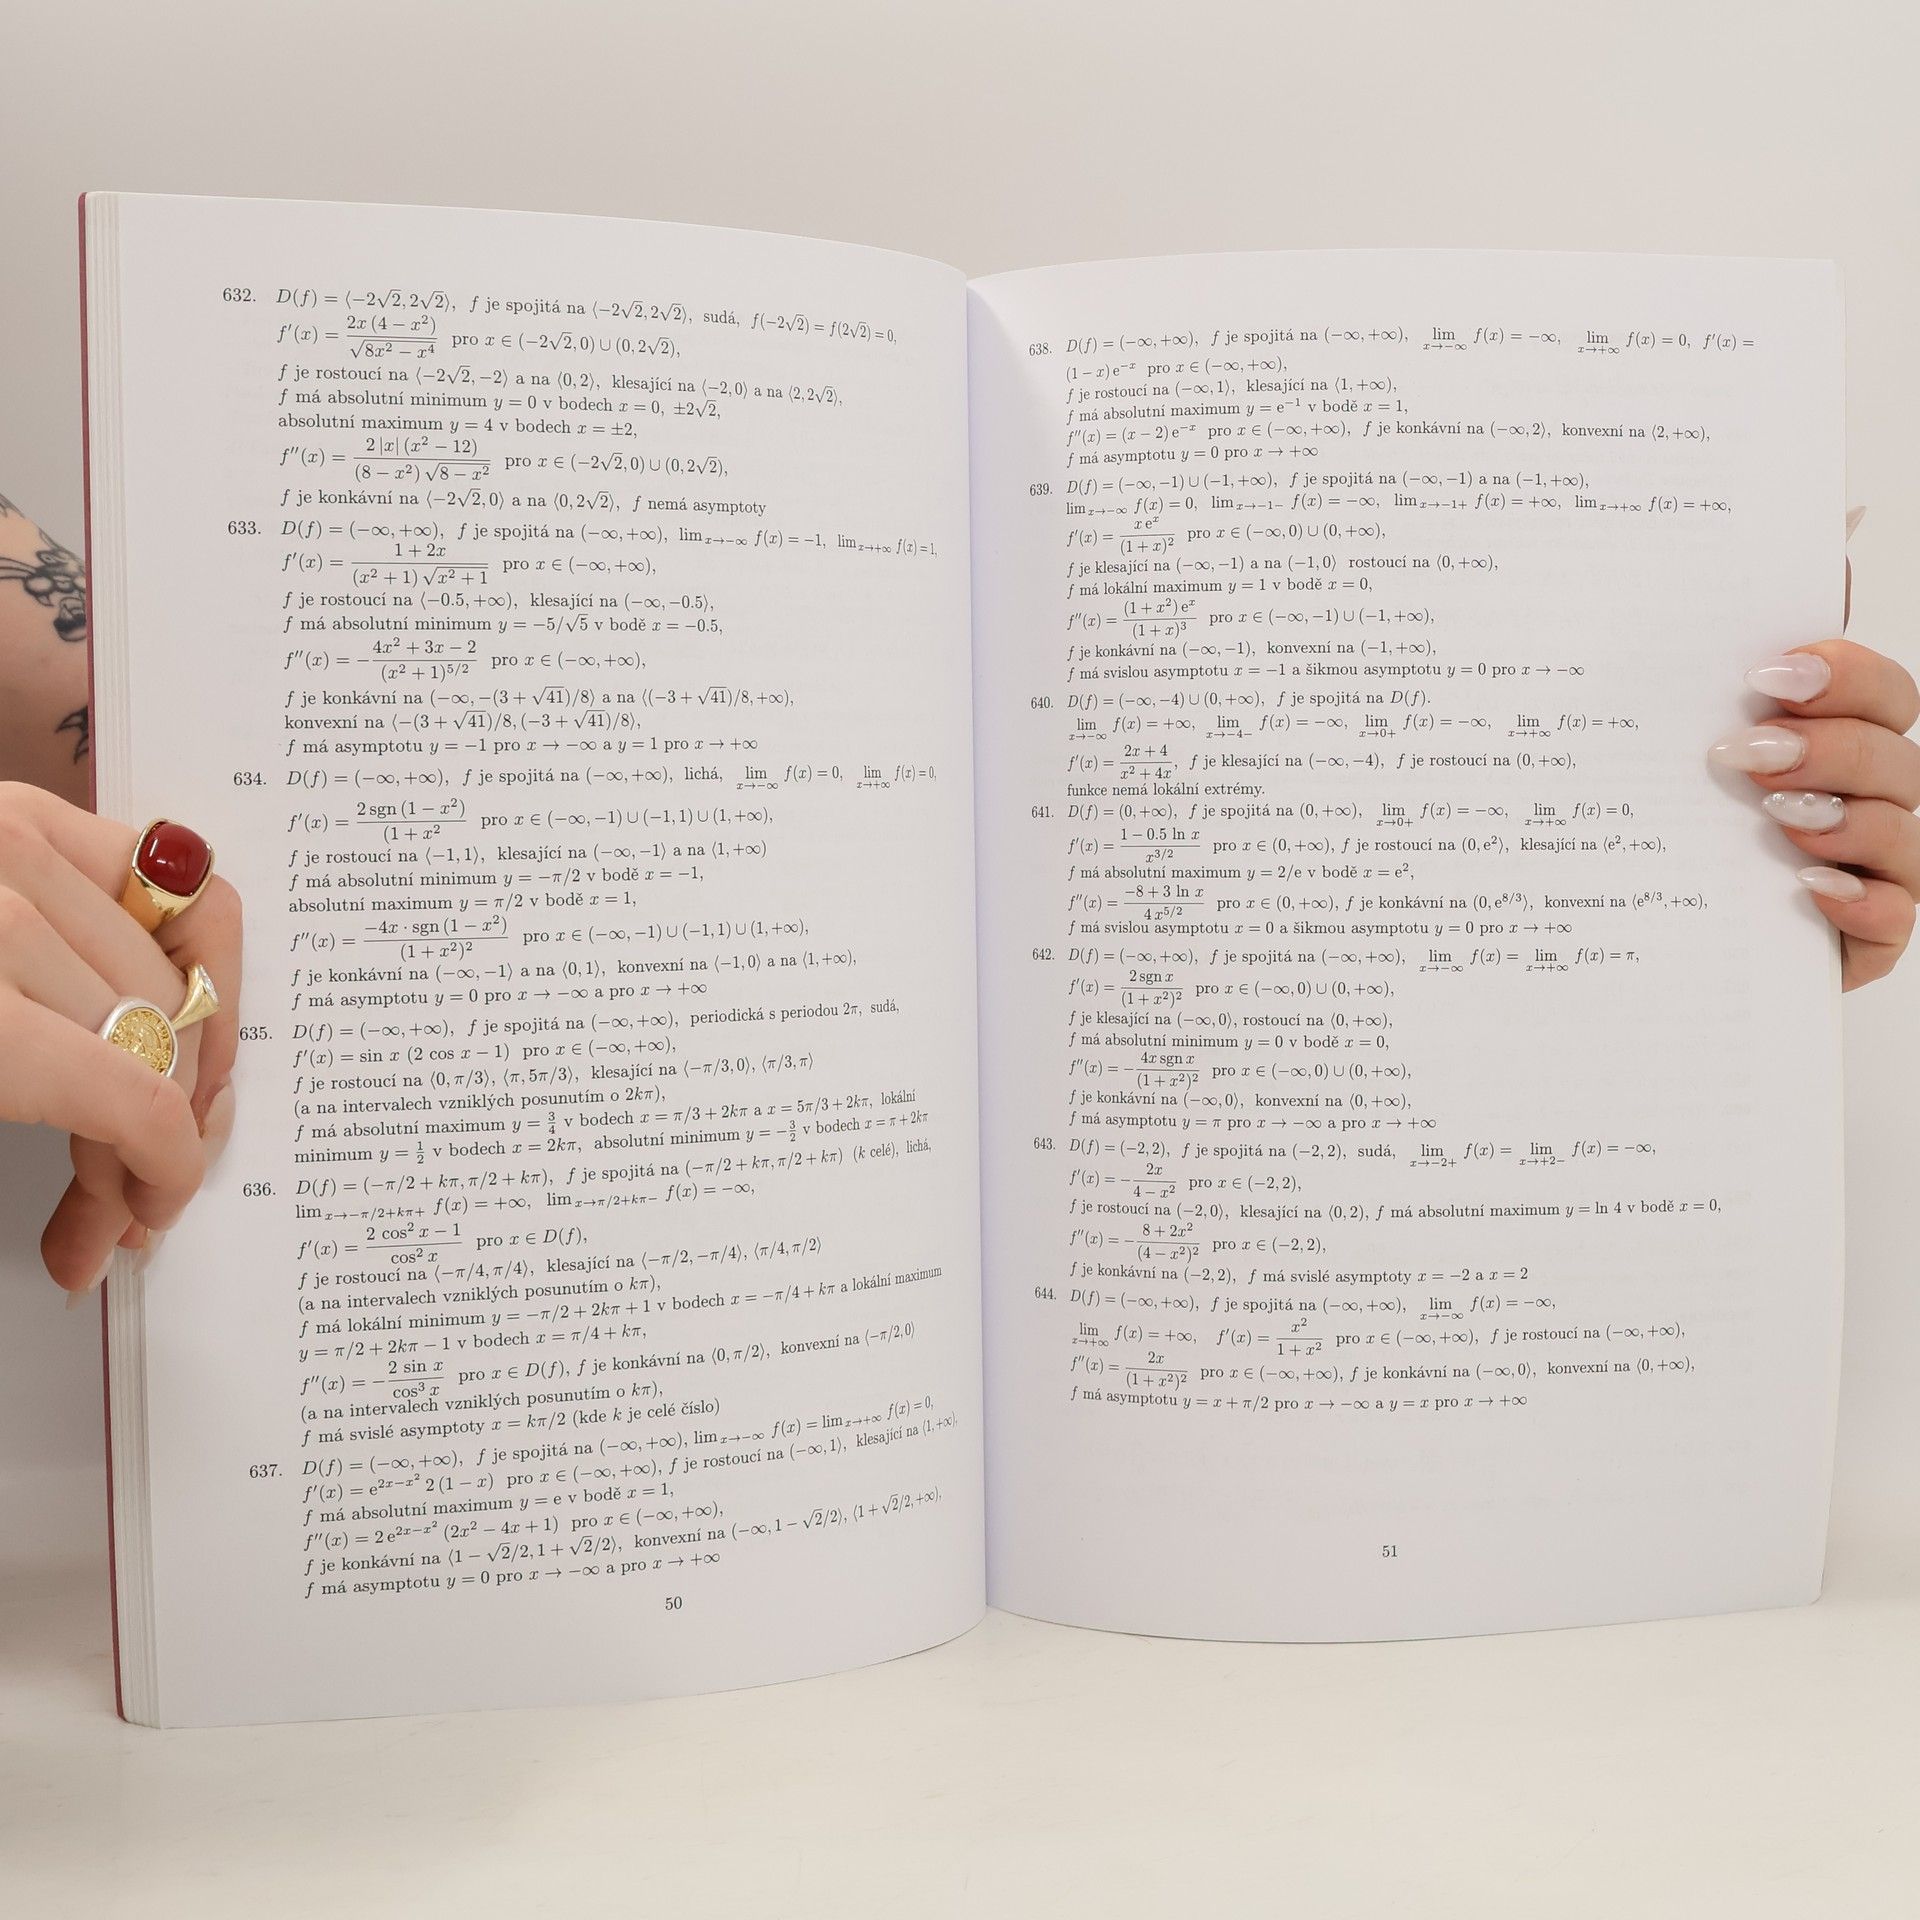 632. D(f) = ⟨−2√2, 2√2⟩, f je spojitá na ⟨−2√2, 2√2⟩, sudá, f(−2√2) = f(2√2) = 0,
f′(x) = 2x (4 − x²) / √(8x² − x⁴) pro x ∈ (−2√2, 0) ∪ (0, 2√2),
f je rostoucí na ⟨−2√2, −2⟩ a na ⟨0, 2⟩, klesající na ⟨−2, 0⟩ a na ⟨2, 2√2⟩,
f má absolutní minimum y = 0 v bodech x = 0, ±2√2,
absolutní maximum y = 4 v bodech x = ±2,
f″(x) = 2 |x| (x² − 12) / (8 − x²) √(8 − x²) pro x ∈ (−2√2, 0) ∪ (0, 2√2),
f je konkávní na ⟨−2√2, 0⟩ a na ⟨0, 2√2⟩, f nemá asymptoty
633. D(f) = (−∞, +∞), f je spojitá na (−∞, +∞), lim x→−∞ f(x) = −1, lim x→+∞ f(x) = 1,
f′(x) = 1 + 2x / (x² + 1) √(x² + 1) pro x ∈ (−∞, +∞),
f je rostoucí na ⟨−0.5, +∞), klesající na (−∞, −0.5⟩,
f má absolutní minimum y = −5/√5 v bodě x = −0.5,
f″(x) = − 4x² + 3x − 2 / (x² + 1)^5/2 pro x ∈ (−∞, +∞),
f je konkávní na (−∞, −(3 + √41)/8⟩ a na ⟨(−3 + √41)/8, +∞),
konvexní na ⟨−(3 + √41)/8, (−3 + √41)/8⟩,
f má asymptotu y = −1 pro x → −∞ a y = 1 pro x → +∞
634. D(f) = (−∞, +∞), f je spojitá na (−∞, +∞), lichá, lim x→−∞ f(x) = 0, lim x→+∞ f(x) = 0,
f′(x) = 2 sgn (1 − x²) / (1 + x² pro x ∈ (−∞, −1) ∪ (−1, 1) ∪ (1, +∞),
f je rostoucí na ⟨−1, 1⟩, klesající na (−∞, −1⟩ a na ⟨1, +∞)
f má absolutní minimum y = −π/2 v bodě x = −1,
absolutní maximum y = π/2 v bodě x = 1,
f″(x) = −4x · sgn (1 − x²) / (1 + x²)² pro x ∈ (−∞, −1) ∪ (−1, 1) ∪ (1, +∞),
f je konkávní na (−∞, −1⟩ a na ⟨0, 1⟩, konvexní na ⟨−1, 0⟩ a na ⟨1, +∞),
f má asymptotu y = 0 pro x → −∞ a pro x → +∞
635. D(f) = (−∞, +∞), f je spojitá na (−∞, +∞), periodická s periodou 2π, sudá,
f′(x) = sin x (2 cos x − 1) pro x ∈ (−∞, +∞),
f je rostoucí na ⟨0, π/3⟩, ⟨π, 5π/3⟩, klesající na ⟨−π/3, 0⟩, ⟨π/3, π⟩
(a na intervalech vzniklých posunutím o 2kπ),
f má absolutní maximum y = 3/4 v bodech x = π/3 + 2kπ a x = 5π/3 + 2kπ, lokální
minimum y = 1/2 v bodech x = 2kπ, absolutní minimum y = −3/2 v bodech x = π + 2kπ
636. D(f) = (−π/2 + kπ, π/2 + kπ), f je spojitá na (−π/2 + kπ, π/2 + kπ) (k celé), lichá,
lim x→−π/2+kπ+ f(x) = +∞, lim x→π/2+kπ− f(x) = −∞,
f′(x) = 2 cos² x − 1 / cos² x pro x ∈ D(f),
f je rostoucí na ⟨−π/4, π/4⟩, klesající na (−π/2, −π/4⟩, ⟨π/4, π/2)
(a na intervalech vzniklých posunutím o kπ),
f má lokální minimum y = −π/2 + 2kπ + 1 v bodech x = −π/4 + kπ a lokální maximum
y = π/2 + 2kπ − 1 v bodech x = π/4 + kπ,
f″(x) = − 2 sin x / cos³ x pro x ∈ D(f), f je konkávní na ⟨0, π/2), konvexní na (−π/2, 0⟩
(a na intervalech vzniklých posunutím o kπ),
f má svislé asymptoty x = kπ/2 (kde k je celé číslo)
637. D(f) = (−∞, +∞), f je spojitá na (−∞, +∞), lim x→−∞ f(x) = lim x→+∞ f(x) = 0,
f′(x) = e^2x−x² 2 (1 − x) pro x ∈ (−∞, +∞), f je rostoucí na (−∞, 1⟩, klesající na ⟨1, +∞),
f má absolutní maximum y = e v bodě x = 1,
f″(x) = 2 e^2x−x² (2x² − 4x + 1) pro x ∈ (−∞, +∞),
f je konkávní na ⟨1 − √2/2, 1 + √2/2⟩, konvexní na (−∞, 1 − √2/2⟩, ⟨1 + √2/2, +∞),
f má asymptotu y = 0 pro x → −∞ a pro x → +∞
50
638. D(f) = (−∞, +∞), f je spojitá na (−∞, +∞), lim x→−∞ f(x) = −∞, lim x→+∞ f(x) = 0, f′(x) =
(1 − x) e^−x pro x ∈ (−∞, +∞),
f je rostoucí na (−∞, 1⟩, klesající na ⟨1, +∞),
f má absolutní maximum y = e^−1 v bodě x = 1,
f″(x) = (x − 2) e^−x pro x ∈ (−∞, +∞), f je konkávní na (−∞, 2⟩, konvexní na ⟨2, +∞),
f má asymptotu y = 0 pro x → +∞
639. D(f) = (−∞, −1) ∪ (−1, +∞), f je spojitá na (−∞, −1) a na (−1, +∞),
lim x→−∞ f(x) = 0, lim x→−1− f(x) = −∞, lim x→−1+ f(x) = +∞, lim x→+∞ f(x) = +∞,
f′(x) = x e^x / (1 + x)² pro x ∈ (−∞, 0) ∪ (0, +∞),
f je klesající na (−∞, −1) a na (−1, 0⟩ rostoucí na ⟨0, +∞),
f má lokální maximum y = 1 v bodě x = 0,
f″(x) = (1 + x²) e^x / (1 + x)³ pro x ∈ (−∞, −1) ∪ (−1, +∞),
f je konkávní na (−∞, −1), konvexní na (−1, +∞),
f má svislou asymptotu x = −1 a šikmou asymptotu y = 0 pro x → −∞
640. D(f) = (−∞, −4) ∪ (0, +∞), f je spojitá na D(f).
lim x→−∞ f(x) = +∞, lim x→−4− f(x) = −∞, lim x→0+ f(x) = −∞, lim x→+∞ f(x) = +∞,
f′(x) = 2x + 4 / x² + 4x, f je klesající na (−∞, −4), f je rostoucí na (0, +∞),
funkce nemá lokální extrémy.
641. D(f) = (0, +∞), f je spojitá na (0, +∞), lim x→0+ f(x) = −∞, lim x→+∞ f(x) = 0,
f′(x) = 1 − 0.5 ln x / x^3/2 pro x ∈ (0, +∞), f je rostoucí na (0, e²⟩, klesající na ⟨e², +∞),
f má absolutní maximum y = 2/e v bodě x = e²,
f″(x) = −8 + 3 ln x / 4 x^5/2 pro x ∈ (0, +∞), f je konkávní na (0, e^8/3⟩, konvexní na ⟨e^8/3, +∞),
f má svislou asymptotu x = 0 a šikmou asymptotu y = 0 pro x → +∞
642. D(f) = (−∞, +∞), f je spojitá na (−∞, +∞), lim x→−∞ f(x) = lim x→+∞ f(x) = π,
f′(x) = 2 sgn x / (1 + x²)² pro x ∈ (−∞, 0) ∪ (0, +∞),
f je klesající na (−∞, 0⟩, rostoucí na ⟨0, +∞),
f má absolutní minimum y = 0 v bodě x = 0,
f″(x) = − 4x sgn x / (1 + x²)² pro x ∈ (−∞, 0) ∪ (0, +∞),
f je konkávní na (−∞, 0⟩, konvexní na ⟨0, +∞),
f má asymptotu y = π pro x → −∞ a pro x → +∞
643. D(f) = (−2, 2), f je spojitá na (−2, 2), sudá, lim x→−2+ f(x) = lim x→+2− f(x) = −∞,
f′(x) = − 2x / 4 − x² pro x ∈ (−2, 2),
f je rostoucí na (−2, 0⟩, klesající na ⟨0, 2), f má absolutní maximum y = ln 4 v bodě x = 0,
f″(x) = − 8 + 2x² / (4 − x²)² pro x ∈ (−2, 2),
f je konkávní na (−2, 2), f má svislé asymptoty x = −2 a x = 2
644. D(f) = (−∞, +∞), f je spojitá na (−∞, +∞), lim x→−∞ f(x) = −∞,
lim x→+∞ f(x) = +∞, f′(x) = x² / 1 + x² pro x ∈ (−∞, +∞), f je rostoucí na (−∞, +∞),
f″(x) = 2x / (1 + x²)² pro x ∈ (−∞, +∞), f je konkávní na (−∞, 0⟩, konvexní na ⟨0, +∞),
f má asymptotu y = x + π/2 pro x → −∞ a y = x pro x → +∞
51